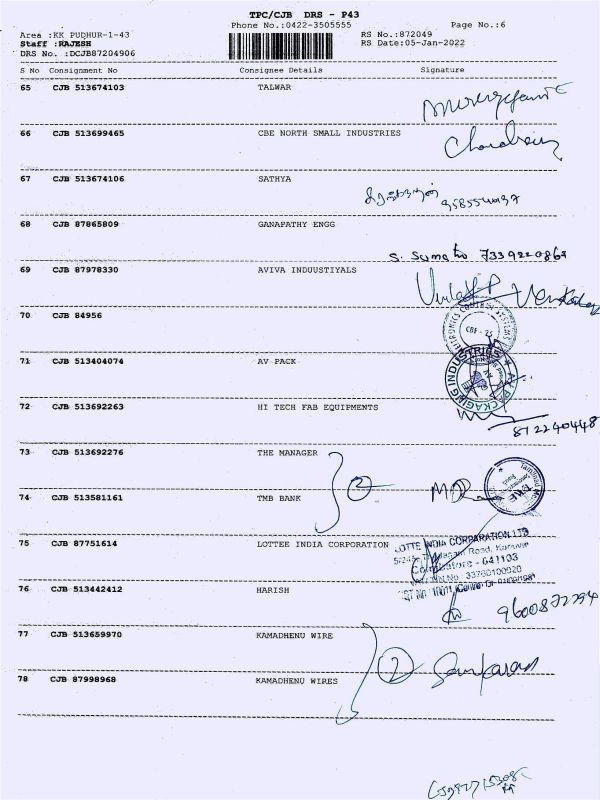 TPC/CJB DRS - P43
Phone No.:0422-3505555
Page No.:6
Area :KK PUDHUR-1-43
RS No.:872049
Staff :RAJESH
RS Date:05-Jan-2022
DRS No. :DCJB87204906
S No Consignment No Consignee Details Signature
65 CJB 513674103 TALWAR
66 CJB 513699465 CBE NORTH SMALL INDUSTRIES
67 CJB 513674106 SATHYA
68 CJB 87865809 GANAPATHY ENGG
S. Suma
69 CJB 87978330 AVIVA INDUUSTIYALS
70 CJB 84956
71 CJB 513404074 AV PACK
72 CJB 513692263 HI TECH FAB EQUIPMENTS
812240448
73 CJB 513692276 THE MANAGER
2
74 CJB 513581161 TMB BANK
75 CJB 87751614 LOTTEE INDIA CORPORATION
LOTTE INDIA CORPARATION LTD
Road,
- 641103
76 CJB 513442412 HARISH
77 CJB 513659970 KAMADHENU WIRE
2 Sankaran
78 CJB 87998968 KAMADHENU WIRES